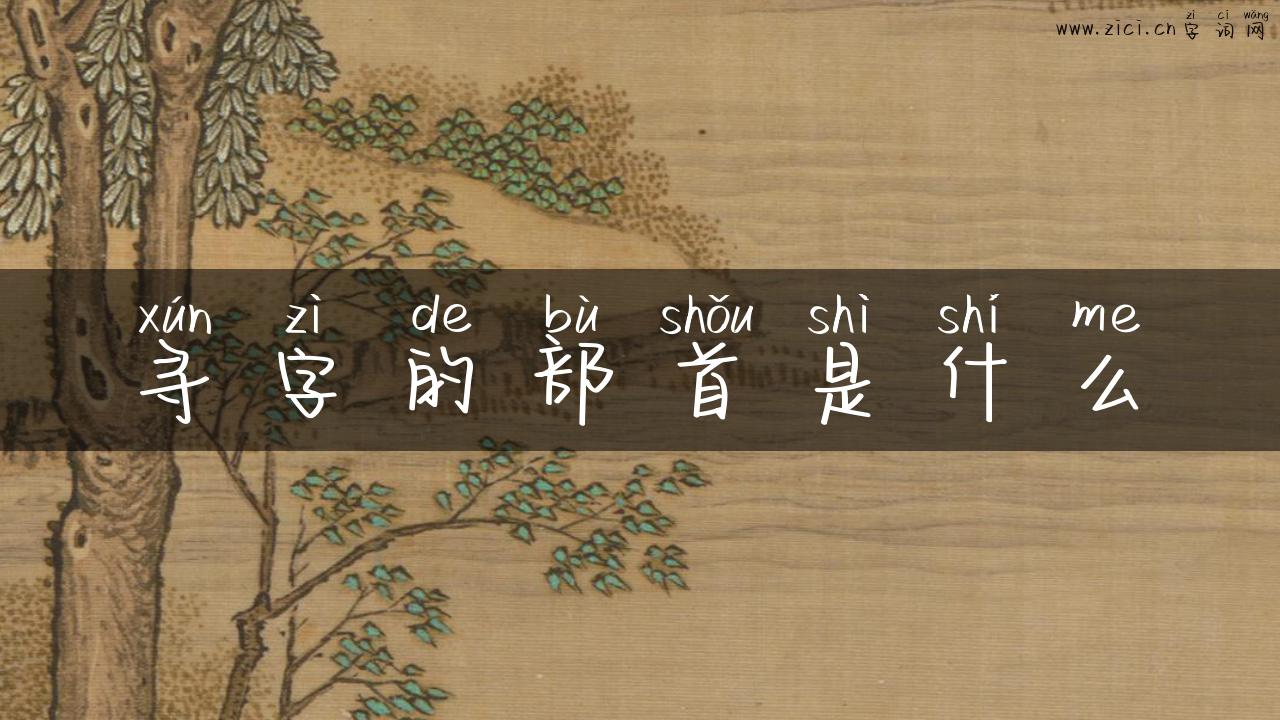 zì cí wǎng
www.zici.cn 字词网
xún zì de bù shǒu shì shí me
寻字的部首是什么